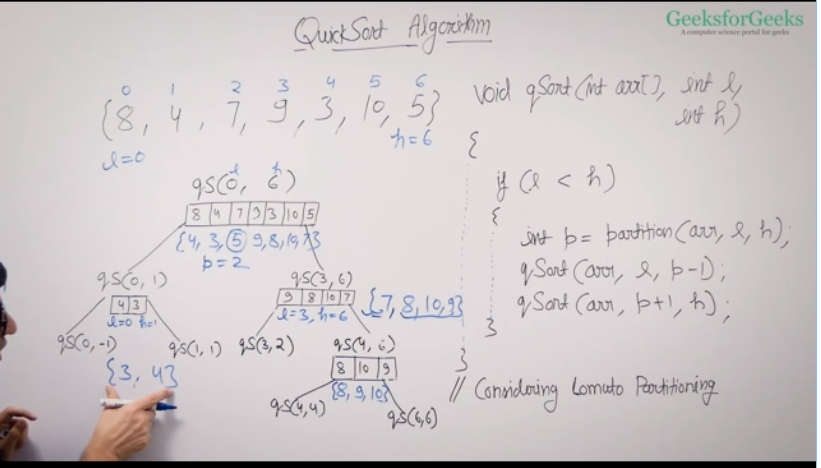 QuickSort Algorithm
GeeksforGeeks
A computer science portal for geeks
0 1 2 3 4 5 6
{8, 4, 7, 9, 3, 10, 5}
l=0 h=6
l h
qS(0, 6)
8 4 7 9 3 10 5
{4, 3, 5 9, 8, 10, 7}
p=2
qS(0, 1)
4 3
l=0 h=1
qS(0, -1)
qS(1, 1)
{3, 4}
qS(3, 6)
9 8 10 7
{7, 8, 10, 9}
l=3, h=6
qS(3, 2)
qS(4, 6)
8 10 9
{8, 9, 10}
qS(4, 4)
qS(6, 6)
void qSort(int arr[], int l,
int h)
{
if (l < h)
{
int p = partition(arr, l, h);
qSort(arr, l, p-1);
qSort(arr, p+1, h);
}
}
// Considering Lomuto Partitioning